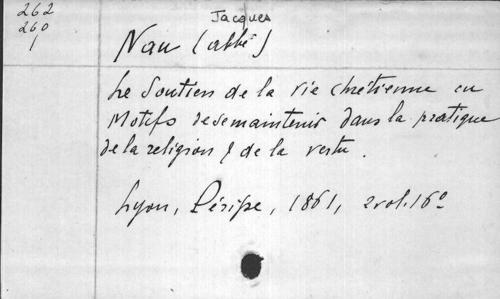 262
260
1
Jacques
Nau (abbé)
Le Soutien de la vie chrétienne ou
Motifs de se maintenir dans la pratique
de la religion & de la vertu.
Lyon, Périsse, 1861, 2 vol. 16°